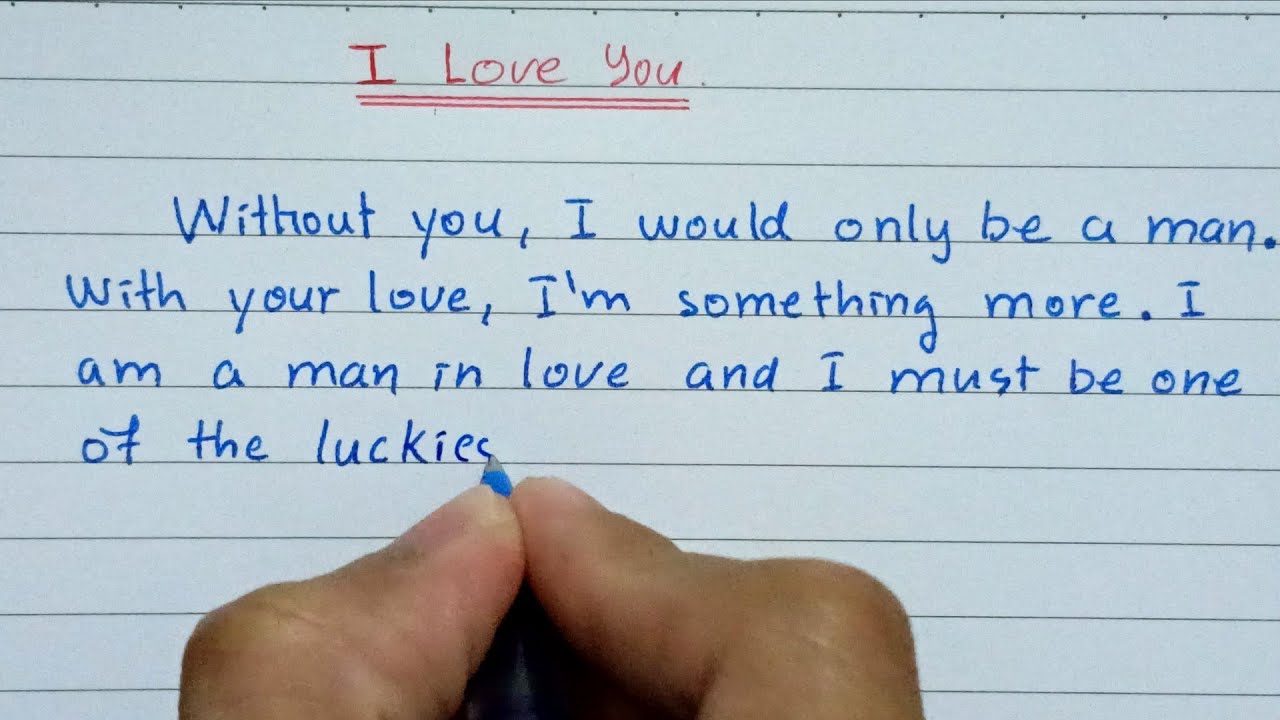 I Love You.
Without you, I would only be a man.
With your love, I'm something more. I
am a man in love and I must be one
of the luckies